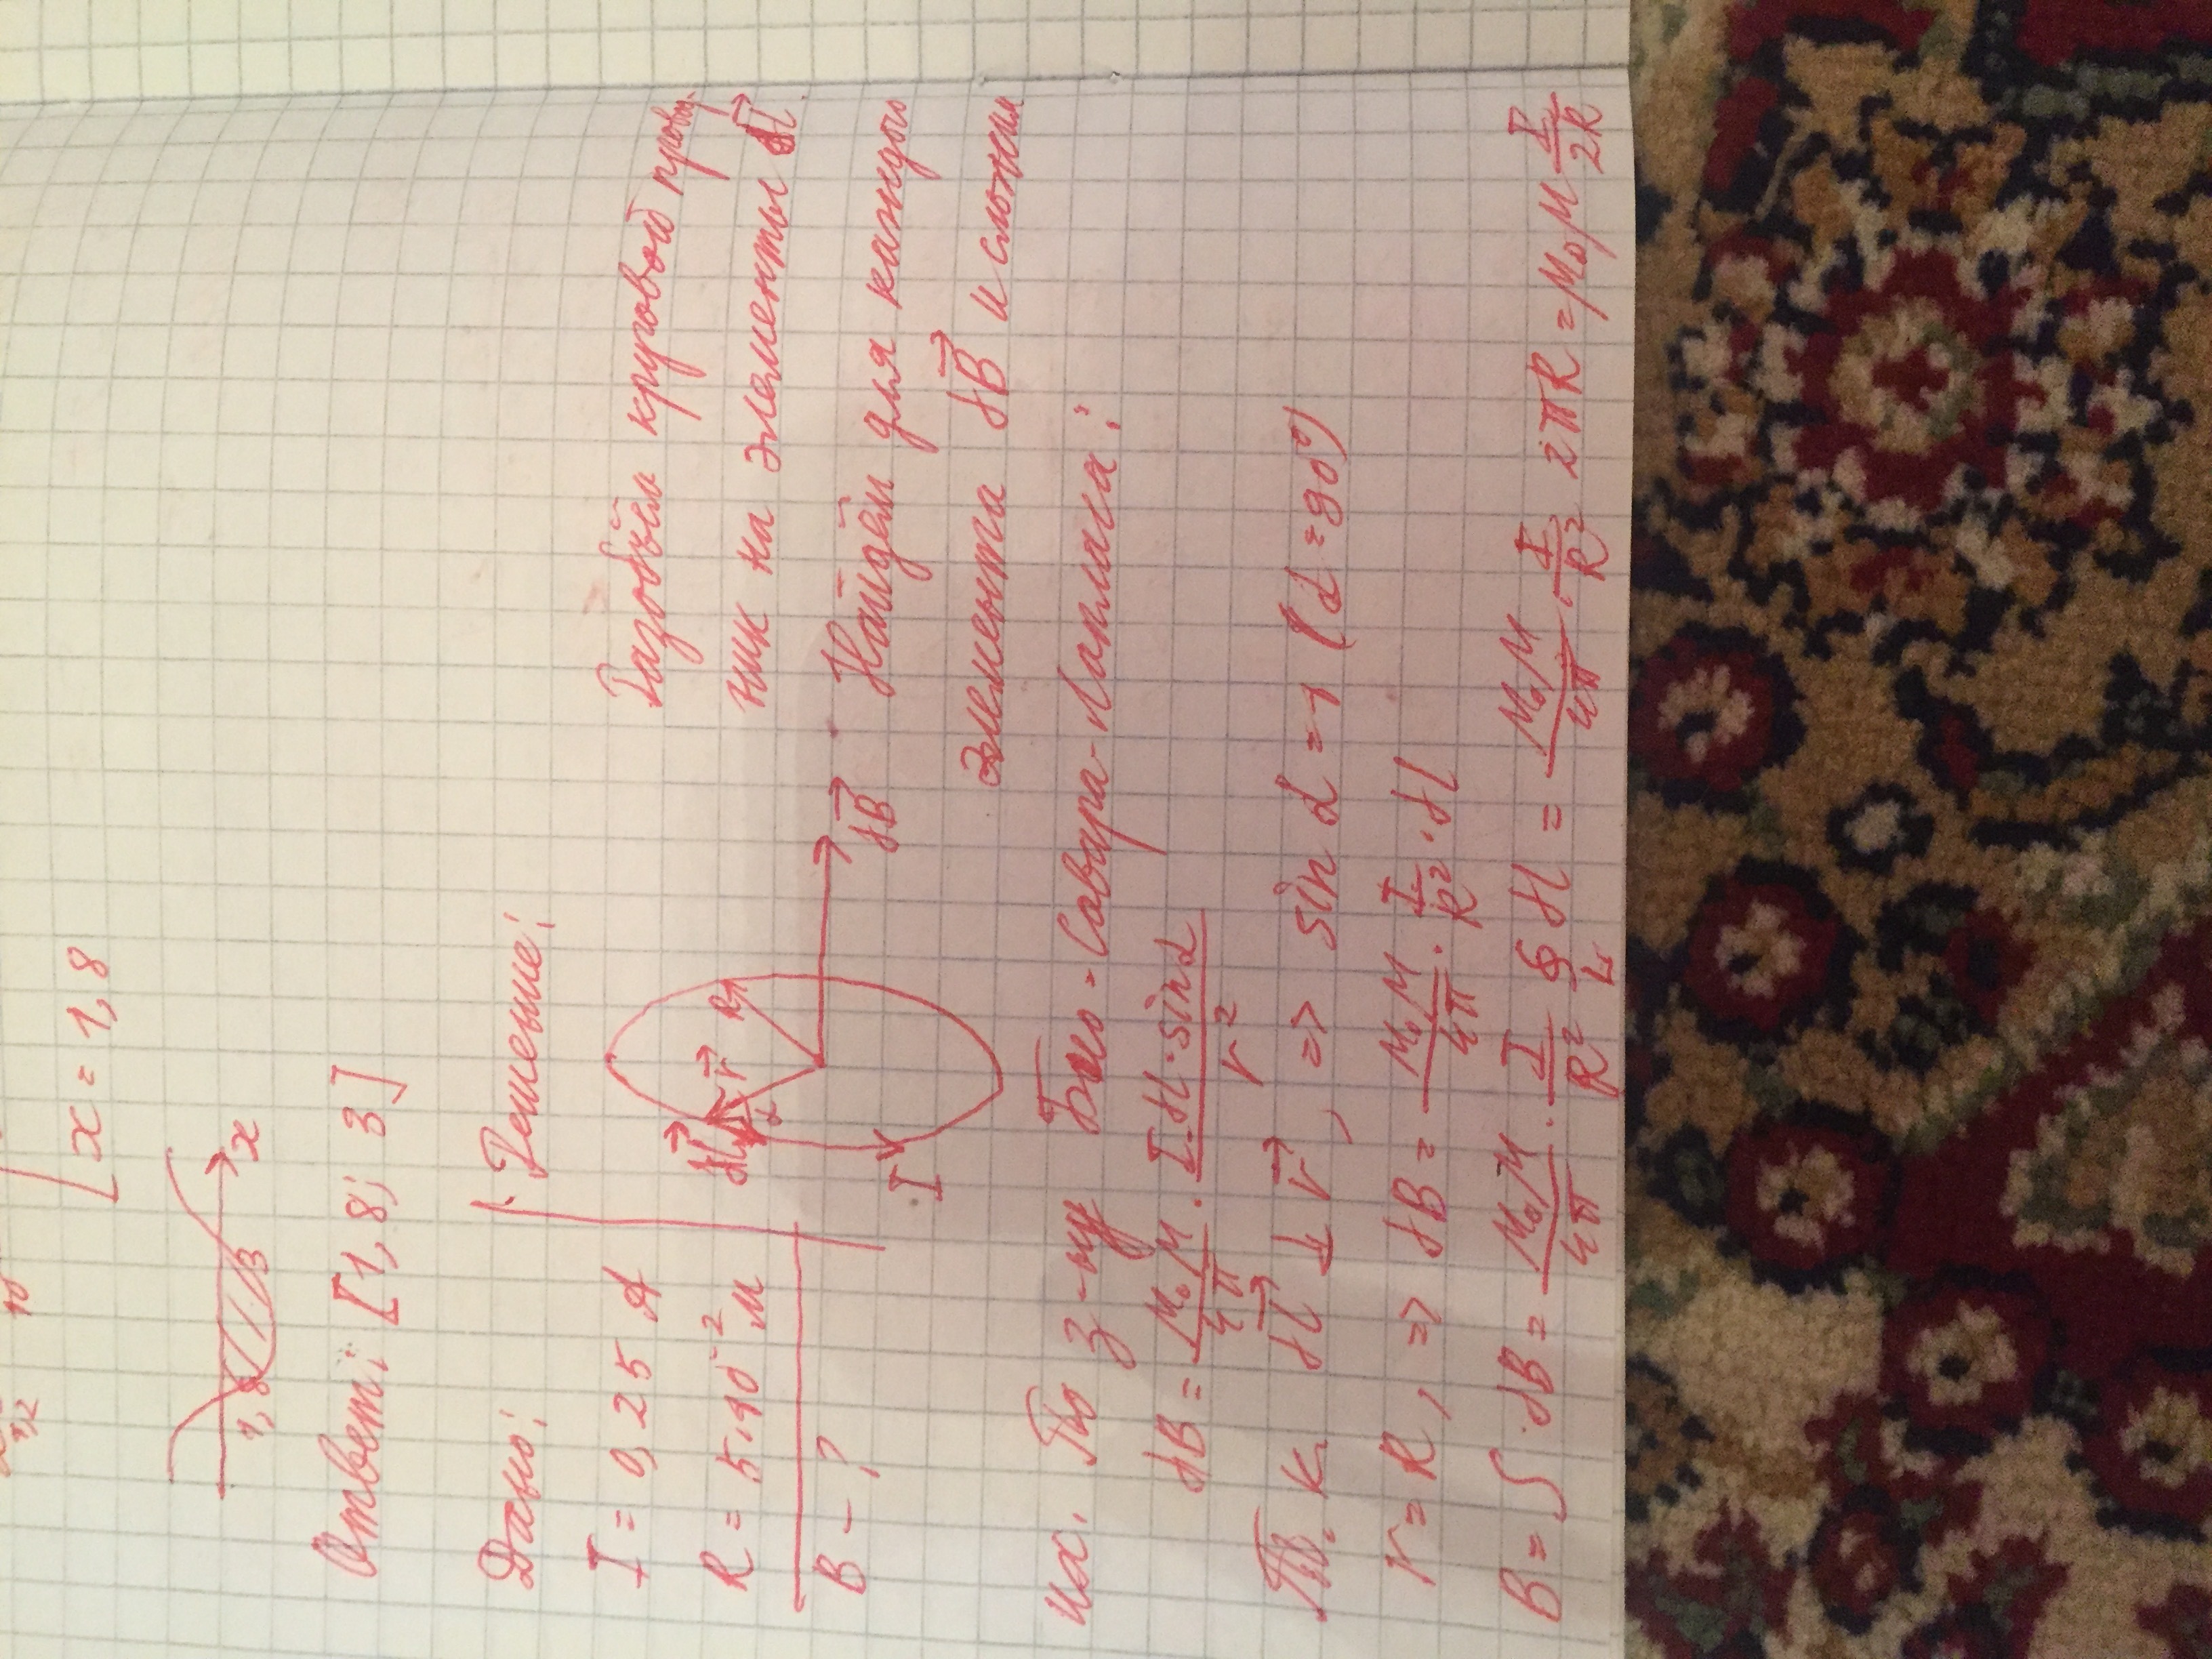 [ x = 1,8
1,8 3 x
Ответ: [1,8; 3]
Дано:
Решение:
I = 0,25 А
R = 5·10⁻² м
B – ?
Разобьём круговой провод-
ник на элементы dl⃗.
Найдём для каждого
элемента dB⃗ и сложим
dl⃗ r⃗ R I dB⃗
их. По з-ну Био-Савара-Лапласа:
dB = μ₀μ/4π · I·dl·sinα/r²
Т. к. dl⃗ ⊥ r⃗, => sin α = 1 (α = 90°)
r = R, => dB = μ₀μ/4π · I/R² · dl
B = ∫ dB = μ₀μ/4π · I/R² ∮_L dl = μ₀μ/4π · I/R² 2πR = μ₀μ I/2R